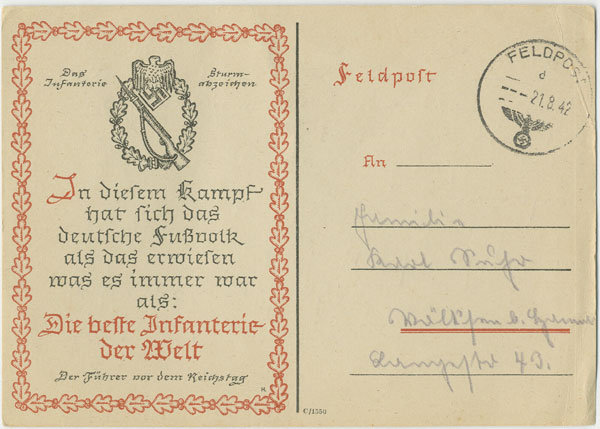 Das Infanterie
Sturm-
abzeichen
In diesem Kampf
hat sich das
deutsche Fußvolk
als das erwiesen
was es immer war
als:
Die beste Infanterie
der Welt
Der Führer vor dem Reichstag
C/1550
Feldpost
FELDPOST
d
21.8.42
An
Familie
Karl
b.
43.